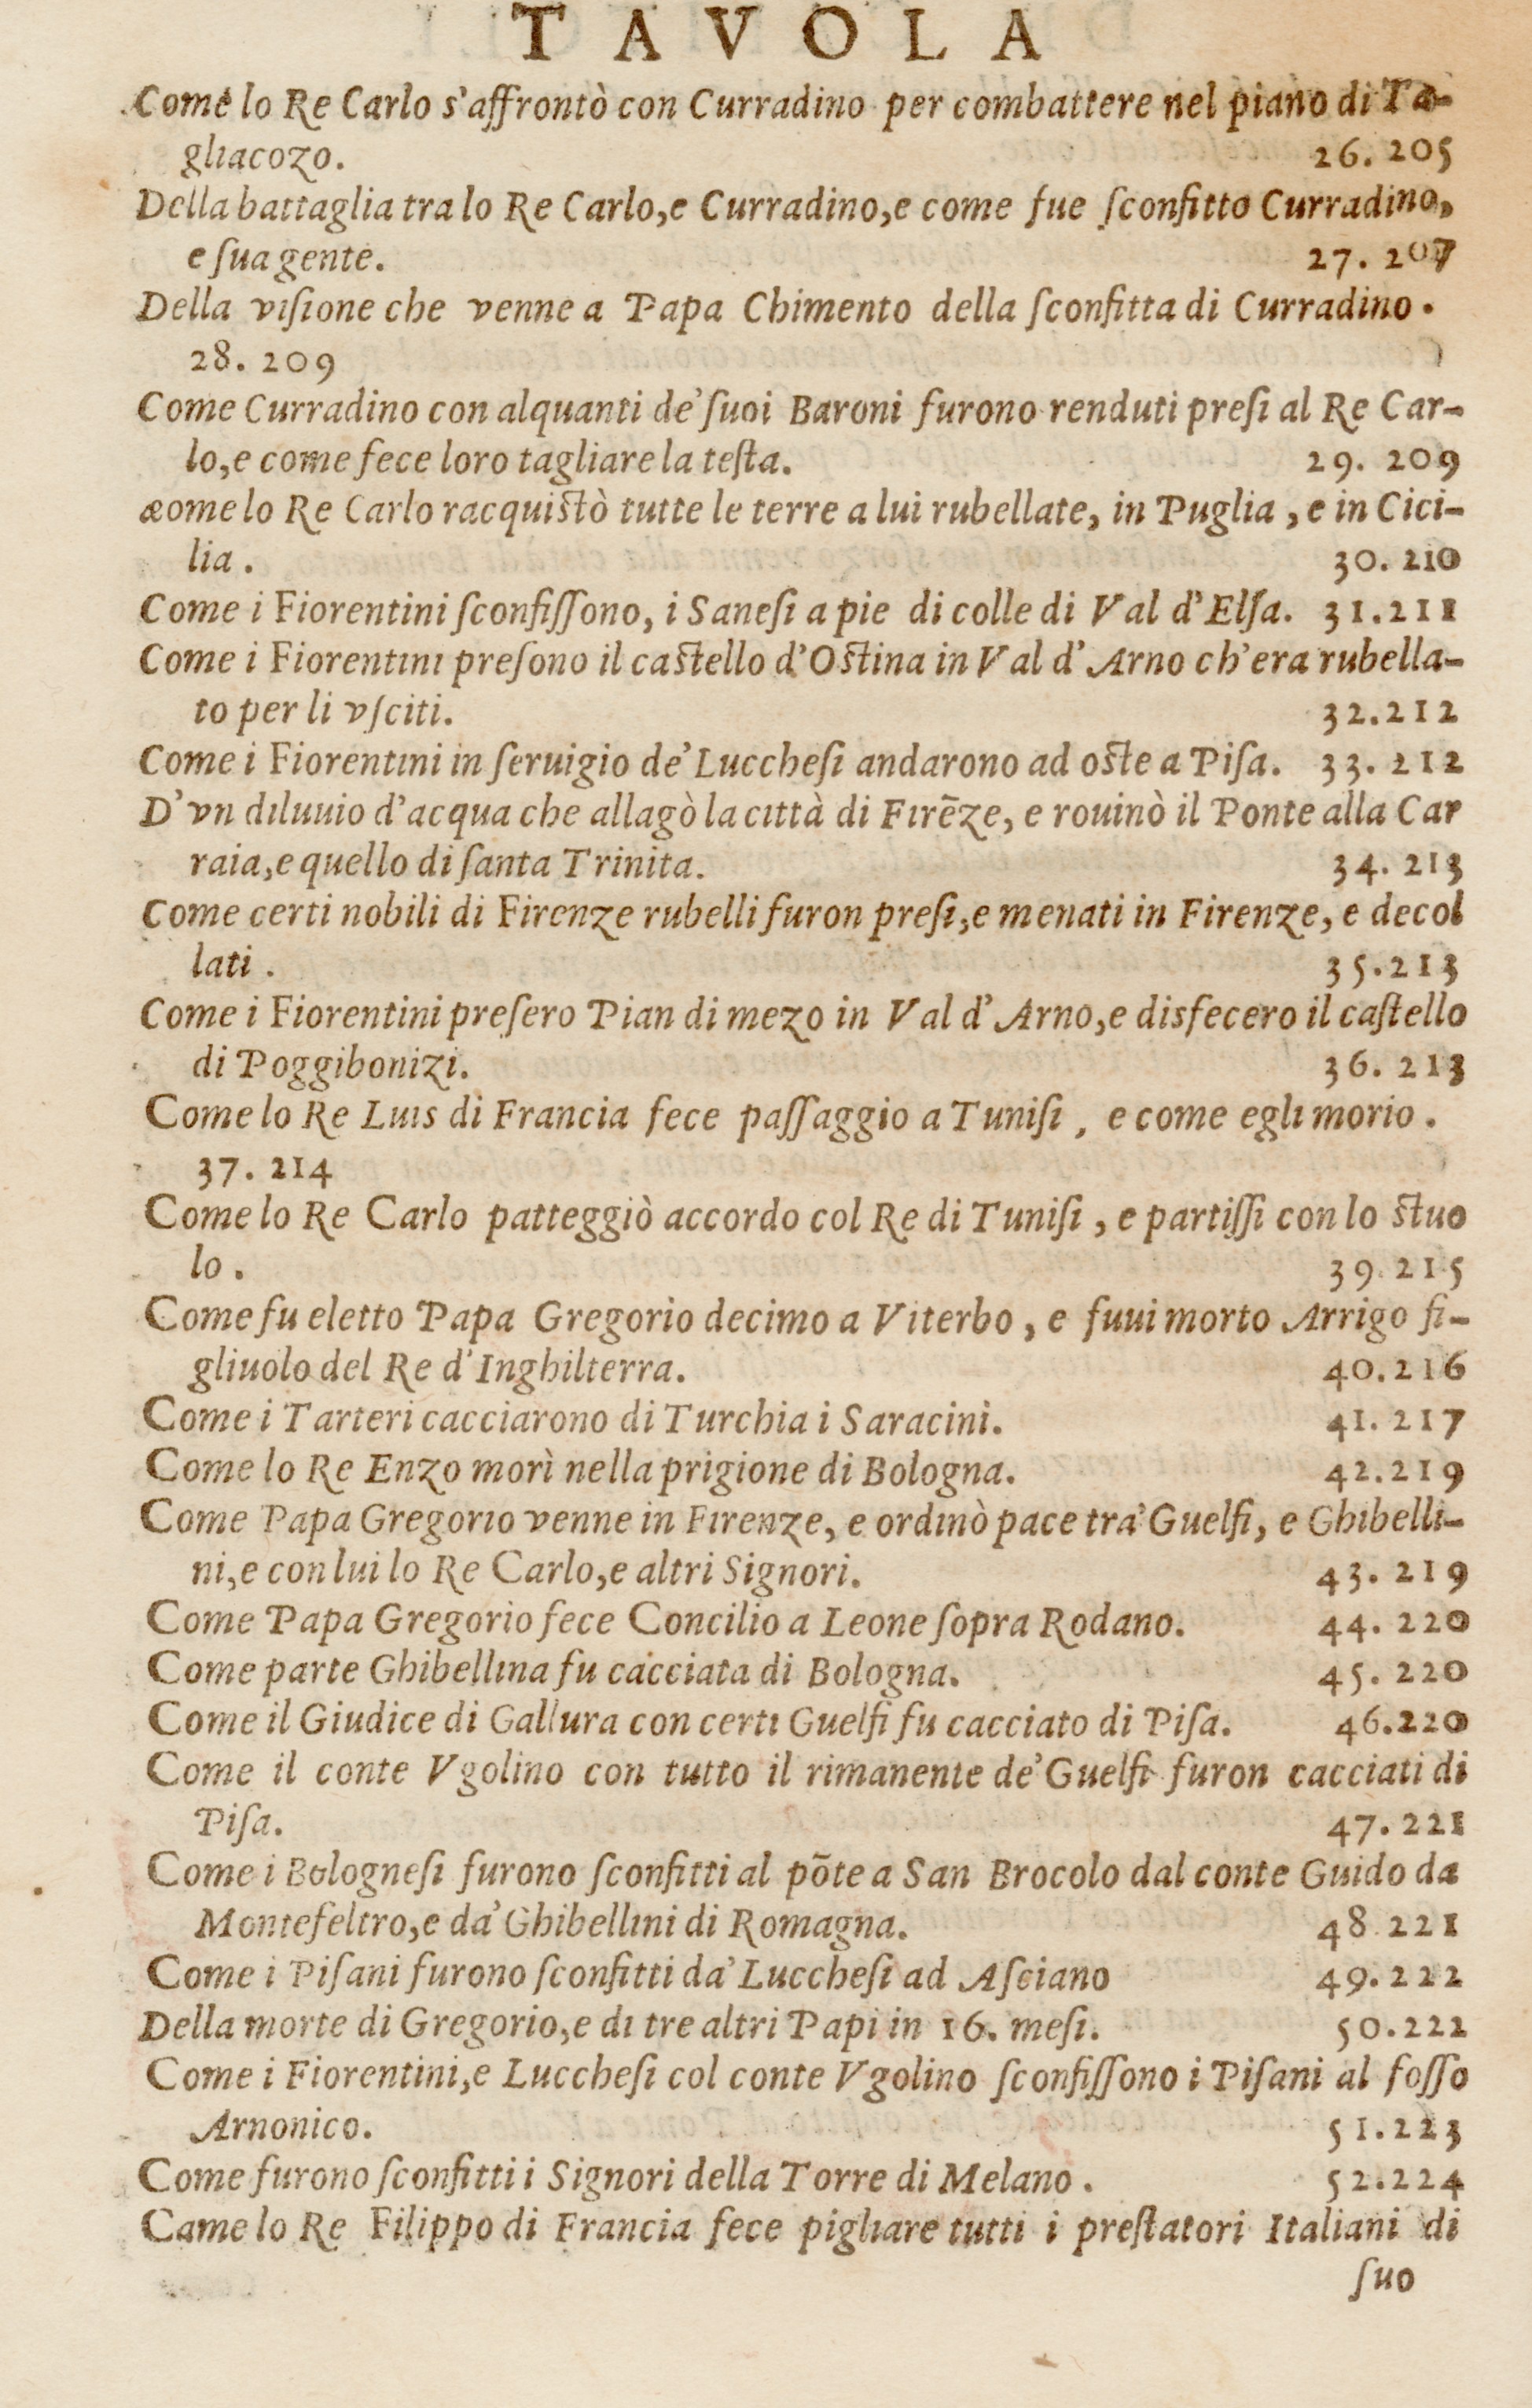 TAVOLA
Come lo Re Carlo s'affrontò con Curradino per combattere nel piano di Ta-
gliacozo. 26. 205
Della battaglia tra lo Re Carlo,e Curradino,e come fue ſconfitto Curradino,
e ſua gente. 27. 207
Della viſione che venne a Papa Chimento della ſconfitta di Curradino.
28. 209
Come Curradino con alquanti de' ſuoi Baroni furono renduti preſi al Re Car-
lo,e come fece loro tagliare la teſta. 29. 209
æome lo Re Carlo racquiſtò tutte le terre a lui rubellate, in Puglia, e in Cici-
lia. 30. 210
Come i Fiorentini ſconfiſſono, i Saneſi a pie di colle di Val d'Elſa. 31.211
Come i Fiorentini preſono il caſtello d'Oſtina in Val d'Arno ch'era rubella-
to per li vſciti. 32.212
Come i Fiorentini in ſeruigio de' Luccheſi andarono ad oſte a Piſa. 33. 212
D'vn diluuio d'acqua che allagò la città di Firēze, e rouinò il Ponte alla Car
raia,e quello di ſanta Trinita. 34. 213
Come certi nobili di Firenze rubelli furon preſi,e menati in Firenze, e decol
lati. 35.213
Come i Fiorentini preſero Pian di mezo in Val d'Arno,e disfecero il caſtello
di Poggibonizi. 36. 213
Come lo Re Luis di Francia fece paſſaggio a Tuniſi, e come egli morio.
37. 214
Come lo Re Carlo patteggiò accordo col Re di Tuniſi, e partiſſi con lo ſtuo
lo. 39. 215
Come fu eletto Papa Gregorio decimo a Viterbo, e fuui morto Arrigo fi-
gliuolo del Re d'Inghilterra. 40.216
Come i Tarteri cacciarono di Turchia i Saracini. 41. 217
Come lo Re Enzo morì nella prigione di Bologna. 42.219
Come Papa Gregorio venne in Firenze, e ordinò pace tra' Guelfi, e Ghibelli-
ni,e con lui lo Re Carlo,e altri Signori. 43. 219
Come Papa Gregorio fece Concilio a Leone ſopra Rodano. 44. 220
Come parte Ghibellina fu cacciata di Bologna. 45. 220
Come il Giudice di Gallura con certi Guelfi fu cacciato di Piſa. 46.220
Come il conte Vgolino con tutto il rimanente de' Guelfi furon cacciati di
Piſa. 47. 221
Come i Bologneſi furono ſconfitti al pōte a San Brocolo dal conte Guido da
Montefeltro,e da' Ghibellini di Romagna. 48. 221
Come i Piſani furono ſconfitti da' Luccheſi ad Aſciano 49.222
Della morte di Gregorio,e di tre altri Papi in 16. meſi. 50.222
Come i Fiorentini,e Luccheſi col conte Vgolino ſconfiſſono i Piſani al foſſo
Arnonico. 51.223
Come furono ſconfitti i Signori della Torre di Melano. 52.224
Came lo Re Filippo di Francia fece pigliare tutti i preſtatori Italiani di
ſuo